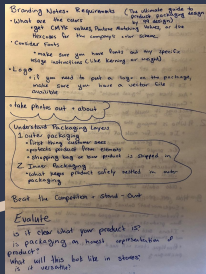 Branding Notes: Requirements (The ultimate guide to product packaging design by 99 design)
• What are the colors
• get CMYK values, Pantone Matching Values, or the hexcodes for the company's color scheme.
Consider Fonts
• make sure you have fonts and any specific usage instructions (like kerning or weight)
• Logo
• if you need to put a logo on the package, make sure you have a vector file available
• take photos out + about
Understand Packaging Layers
1. outer packaging
• First thing customer sees
• protects product from elements
• shopping bag or box product is shipped in
2. Inner Packaging
• what keeps product safely nestled in outer packaging
Beat the Competition + Stand-Out
Evalute
is it clear what your product is?
is packaging an honest representation of product?
What will this look like in stores?
is it versatile?